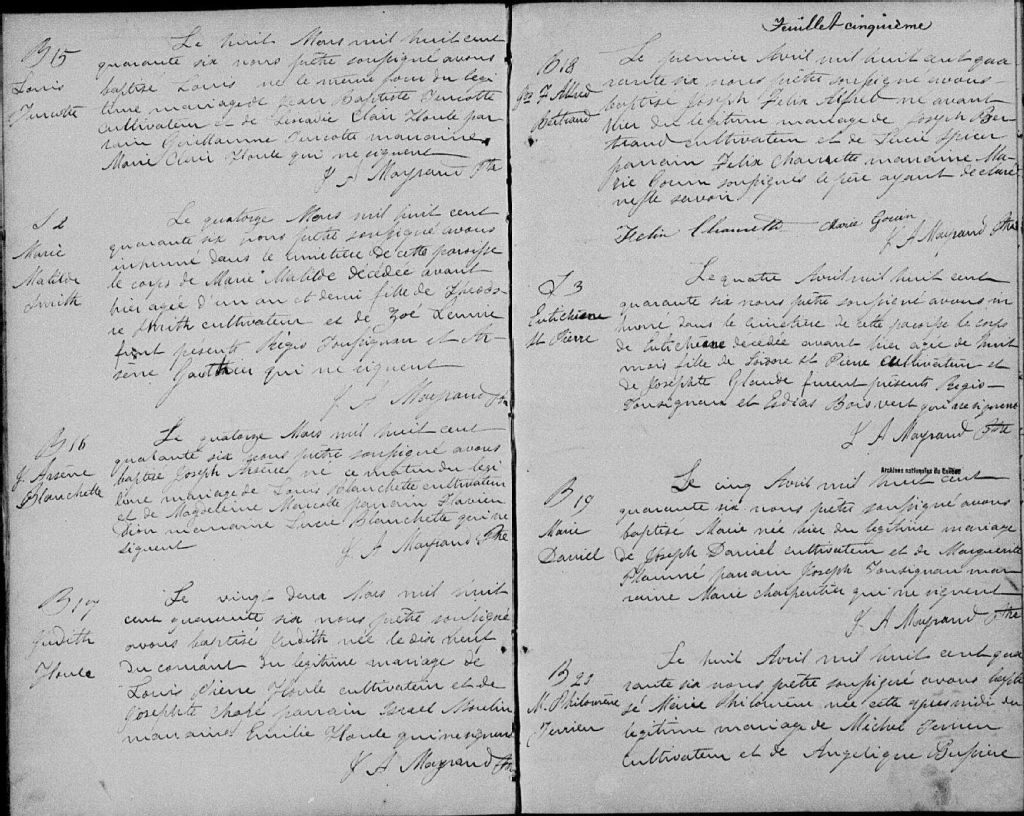 B 15
Louis
Turcotte
Le huit Mars mil huit cent
quarante six nous prêtre soussigné avons
baptisé Louis né le même jour du légi
time mariage de Jean Baptiste Turcotte
cultivateur et de Léocadie Clair Houle par
rain Guillaume Turcotte marraine
Marie Clair Houle qui ne signent
J A Mayrand Ptre
S 2
Marie
Matilde
Smith
Le quatorze Mars mil huit cent
quarante six nous prêtre soussigné avons
inhumé dans le cimetière de cette paroisse
le corps de Marie Matilde décédée avant
hier agée d'un an et demi fille de
Smith cultivateur et de Zoé
furent présents Régis Tousignan et Ar
sène Gauthier qui ne signent
J A Mayrand Ptre
B 16
J. Arsène
Blanchette
Le quatorze Mars mil huit cent
quarante six nous prêtre soussigné avons
baptisé Joseph Arsène né ce matin du légi
time mariage de Louis Blanchette cultivateur
et de Magdeleine Marcotte parrain Flavien
Dion marraine Lucie Blanchette qui ne
signent
J A Mayrand Ptre
B 17
Judith
Houle
Le vingt deux Mars mil huit
cent quarante six nous prêtre soussigné
avons baptisé Judith née le dix huit
du courant du légitime mariage de
Louis Pierre Houle cultivateur et de
Josephte parrain Israel Moulin
marraine Emilie Houle qui ne signent
J A Mayrand Ptre
Feuillet cinquième
B 18
Jh F Alfred
Bertrand
Le premier Avril mil huit cent qua
rante six nous prêtre soussigné avons
baptisé Joseph Felix Alfred né avant
hier du légitime mariage de Joseph Ber
trand cultivateur et de Lucie Spicer
parrain Felix Charrette marraine Ma
rie Gouin soussignés le père ayant déclaré
ne le savoir
Felix Charrette Marie Gouin
J A Mayrand Ptre
S 3
Eutichiene
St Pierre
Le quatre Avril mil huit cent
quarante six nous prêtre soussigné avons in
humé dans le cimetière de cette paroisse le corps
de Eutichiene décédée avant hier agée de huit
mois fille de Isidore St Pierre cultivateur et
de Josephte Glaude furent présents Régis
Tousignan et Esdras Boisvert qui ne signent
J A Mayrand Ptre
Archives nationales du Québec
B 19
Marie
Daniel
Le cinq Avril mil huit cent
quarante six nous prêtre soussigné avons
baptisé Marie née hier du légitime mariage
de Joseph Daniel cultivateur et de Marguerite
parrain Joseph Tousignan mar
raine Marie Charpentier qui ne signent
J A Mayrand Ptre
B 20
M. Philomène
Terrien
Le huit Avril mil huit cent qua
rante six nous prêtre soussigné avons bapti
sé Marie Philomène née cette après midi du
légitime mariage de Michel Terrien
cultivateur et de Angelique